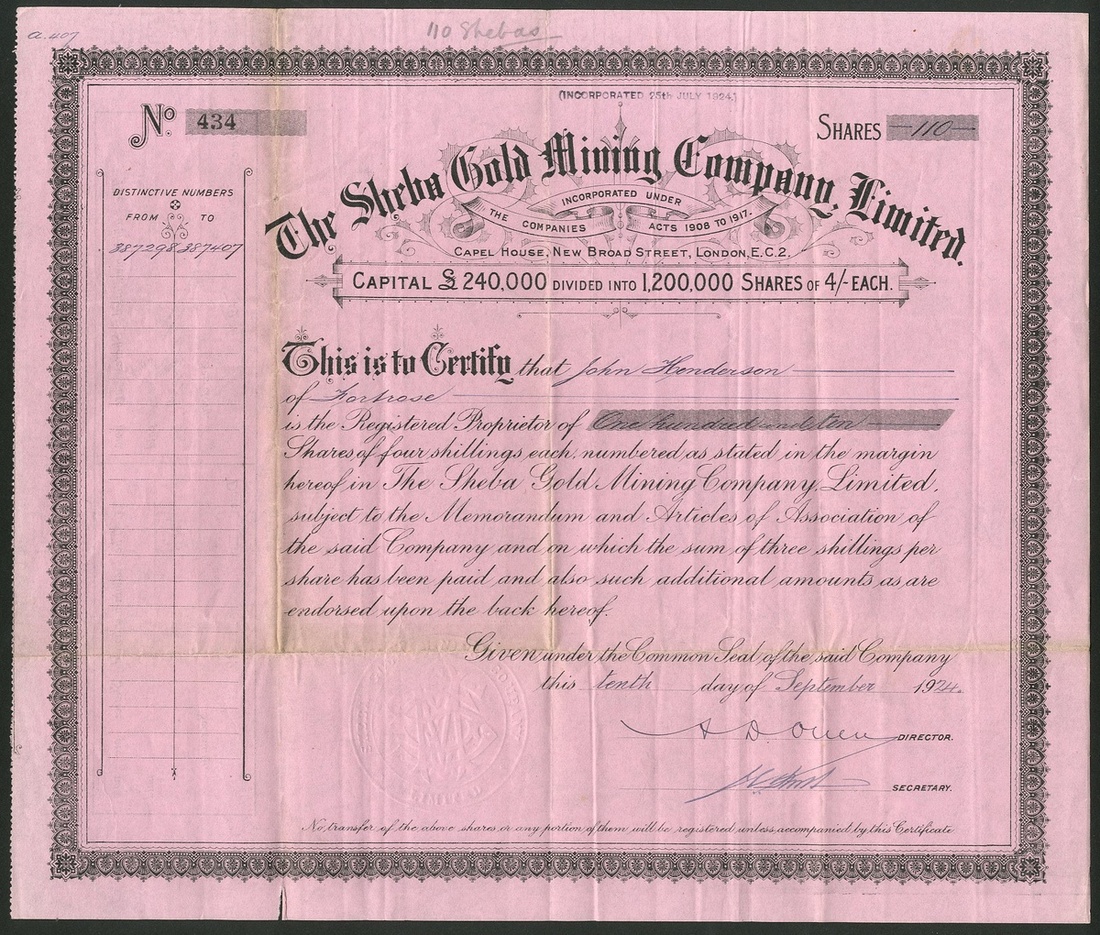 a.407
110 Shebas
(INCORPORATED 25th JULY 1924)
No 434
SHARES 110
The Sheba Gold Mining Company, Limited.
INCORPORATED UNDER
THE COMPANIES ACTS 1908 TO 1917.
CAPEL HOUSE, NEW BROAD STREET, LONDON, E.C.2.
CAPITAL £240,000 DIVIDED INTO 1,200,000 SHARES OF 4/- EACH.
DISTINCTIVE NUMBERS
FROM TO
387298 387407
This is to Certify that John Henderson
of Fortrose
is the Registered Proprietor of One hundred and ten
Shares of four shillings each, numbered as stated in the margin
hereof in The Sheba Gold Mining Company, Limited,
subject to the Memorandum and Articles of Association of
the said Company and on which the sum of three shillings per
share has been paid and also such additional amounts as are
endorsed upon the back hereof.
Given under the Common Seal of the said Company
this tenth day of September 1924.
A D Owen DIRECTOR.
SECRETARY.
LIMITED
No transfer of the above shares or any portion of them will be registered unless accompanied by this Certificate